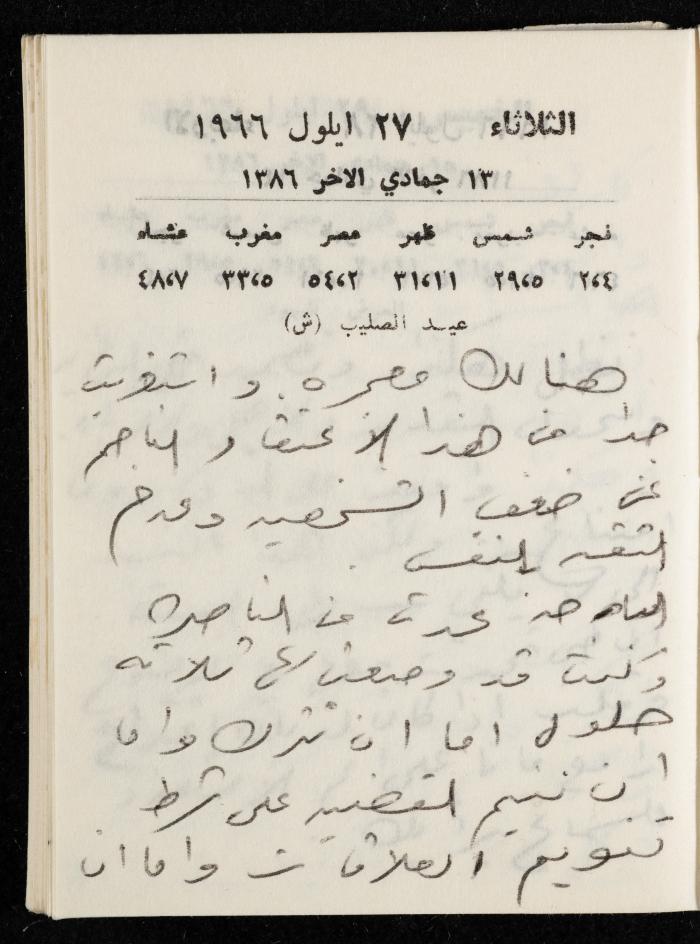 الثلاثاء ٢٧ ايلول ١٩٦٦
١٣ جمادي الاخر ١٣٨٦
فجر شمس ظهر عصر مغرب عشاء
٢،٤ ٢٩،٥ ٣١،١١ ٥٤،٢ ٣٣،٥ ٤٨،٧
عيد الصليب (ش)
هنالك و استغربت
جدا من هذا الاعتقاد الناجم
عن ضعف الشخصيه وعدم
الثقه بالنفس .
عدت من الناصره
وكنت قد وضعت ثلاثه
حلول اما ان تترك واما
ان القضيه على شرط
العلاقات واما ان